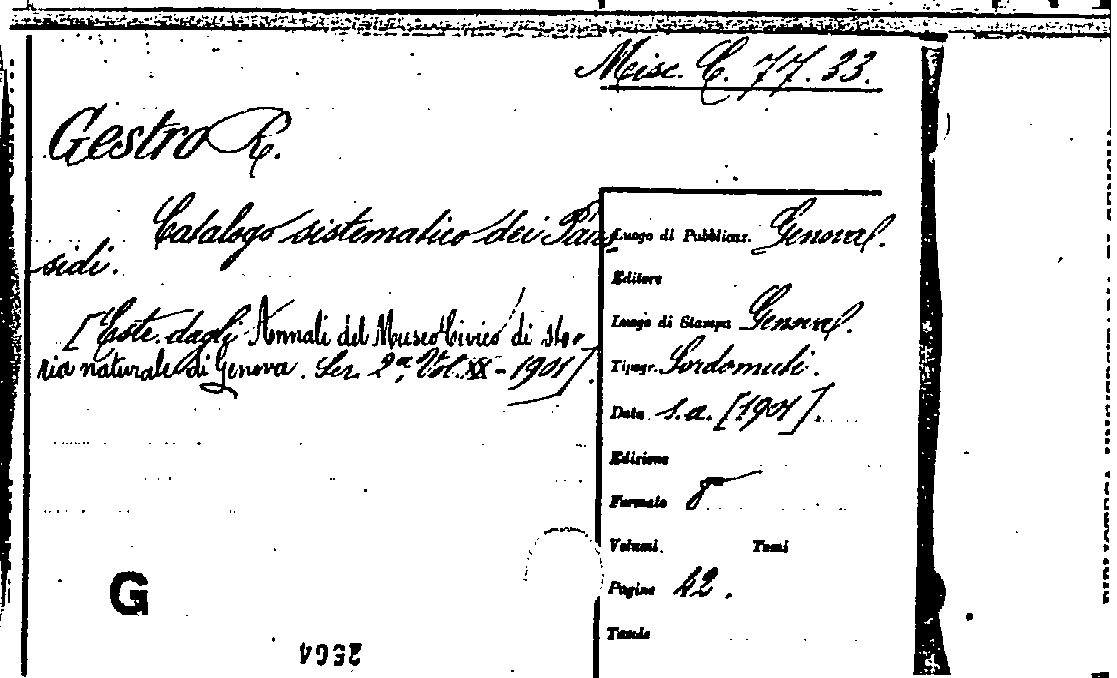 Misc. C. 77.33.
Gestro R.
Catalogo sistematico dei Paus
sidi.
[Estr. dagli Annali del Museo Civico di sto-
ria naturale di Genova. Ser. 2ª, Vol. XX - 1901].
Luogo di Pubblicaz. Genova.
Editore
Luogo di Stampa Genova.
Tipogr. Sordomuti.
Data s.a. [1901].
Edizione
Formato 8°
Volumi. Tomi
Pagine 42.
Tavole
G
2564